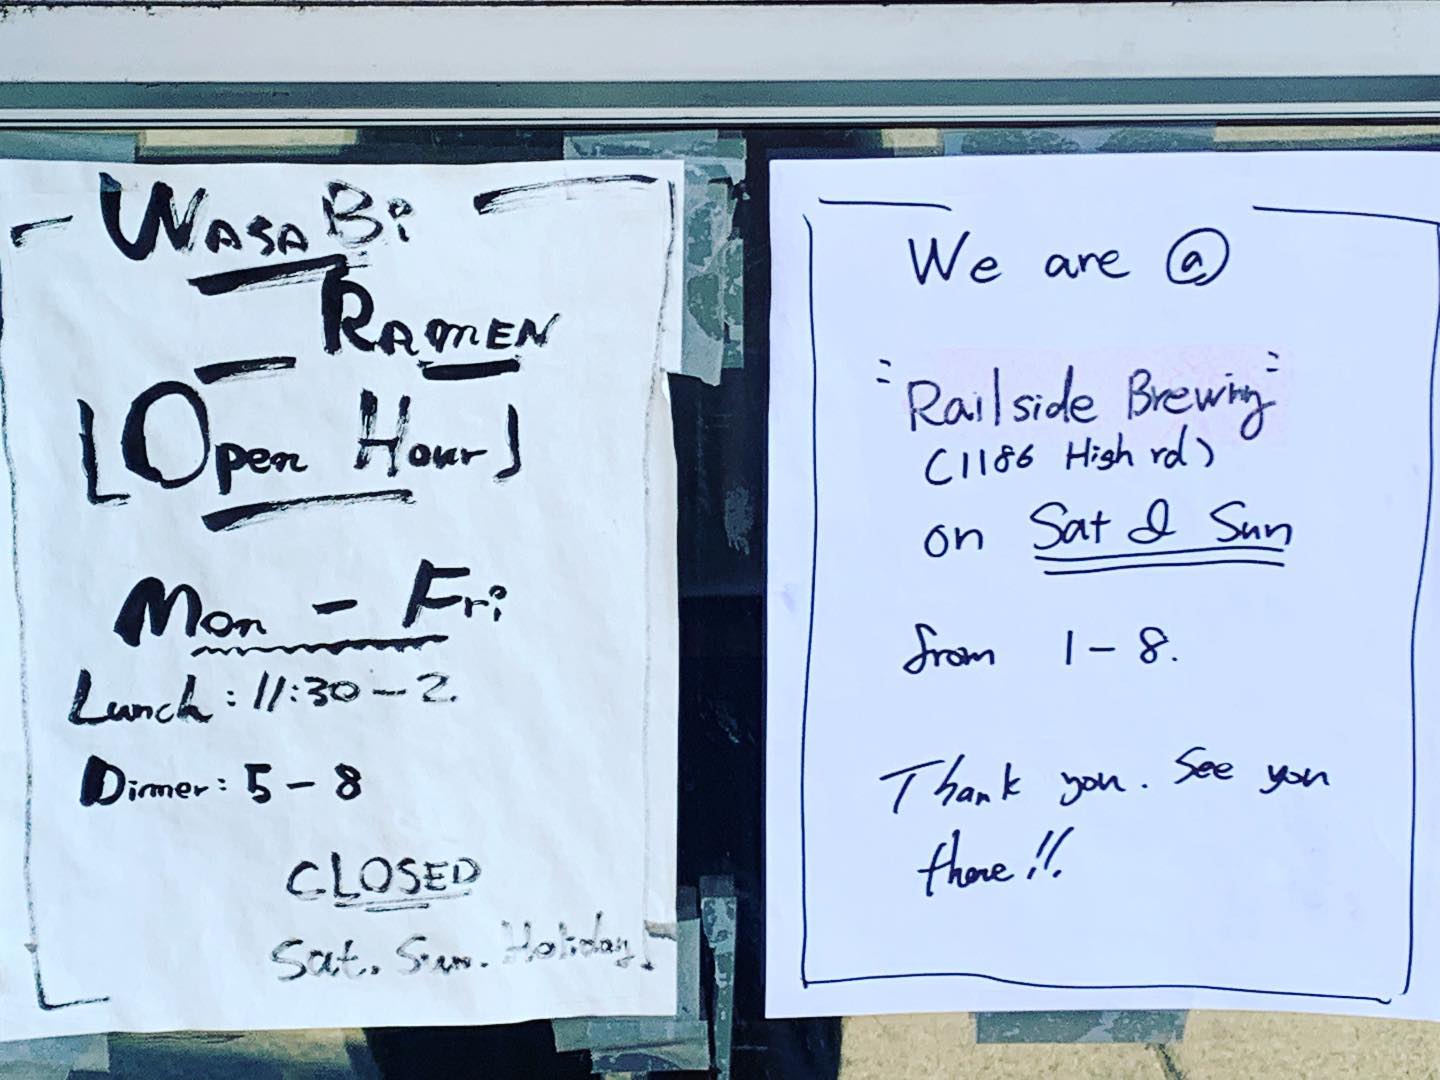 WASABi
RAMEN
[Open Hour]
Mon - Fri
Lunch: 11:30 - 2.
Dinner: 5 - 8
CLOSED
Sat. Sun. Holiday
We are @
"Railside Brewing"
(1186 High rd)
on Sat & Sun
from 1 - 8.
Thank you. See you
there!!